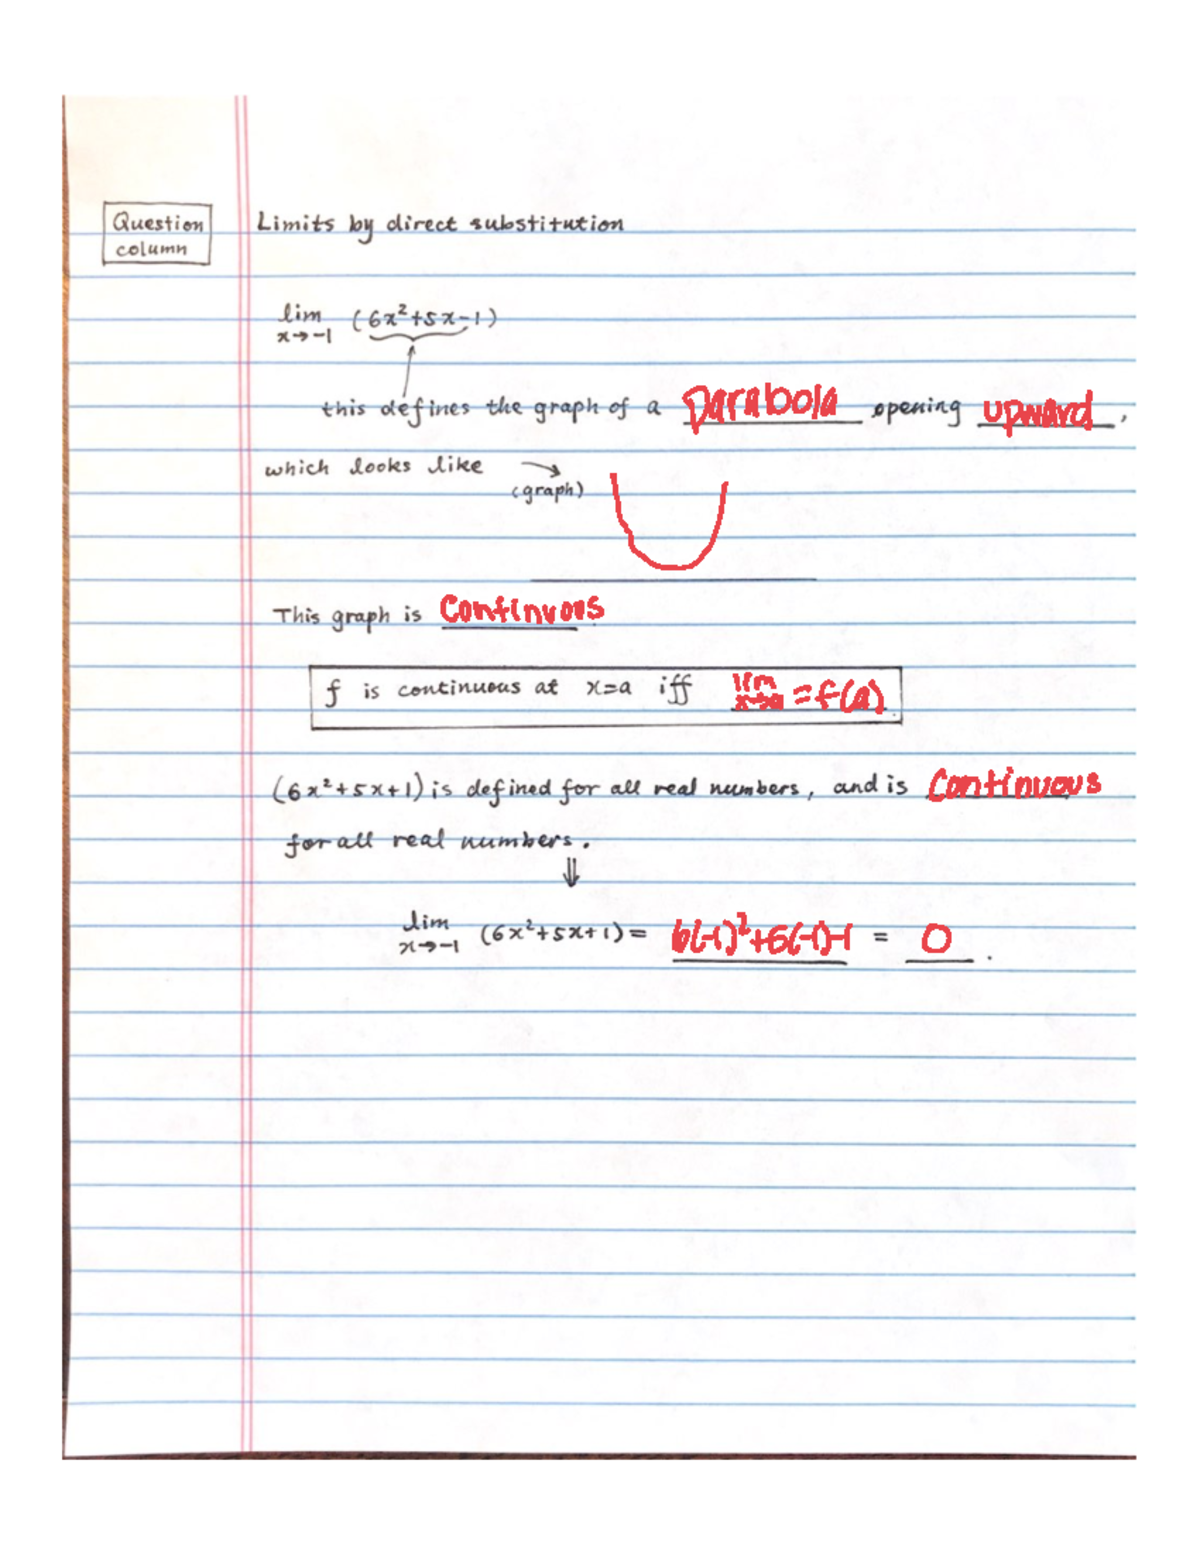 Question
column
Limits by direct substitution
lim (6x²+5x-1)
x→-1
this defines the graph of a parabola opening upward,
which looks like →
(graph)
This graph is continuous
f is continuous at x=a iff lim = f(a)
x→a
(6x²+5x+1) is defined for all real numbers, and is continuous
for all real numbers.
⇓
lim (6x²+5x+1) = 6(-1)²+5(-1)-1 = 0.
x→-1